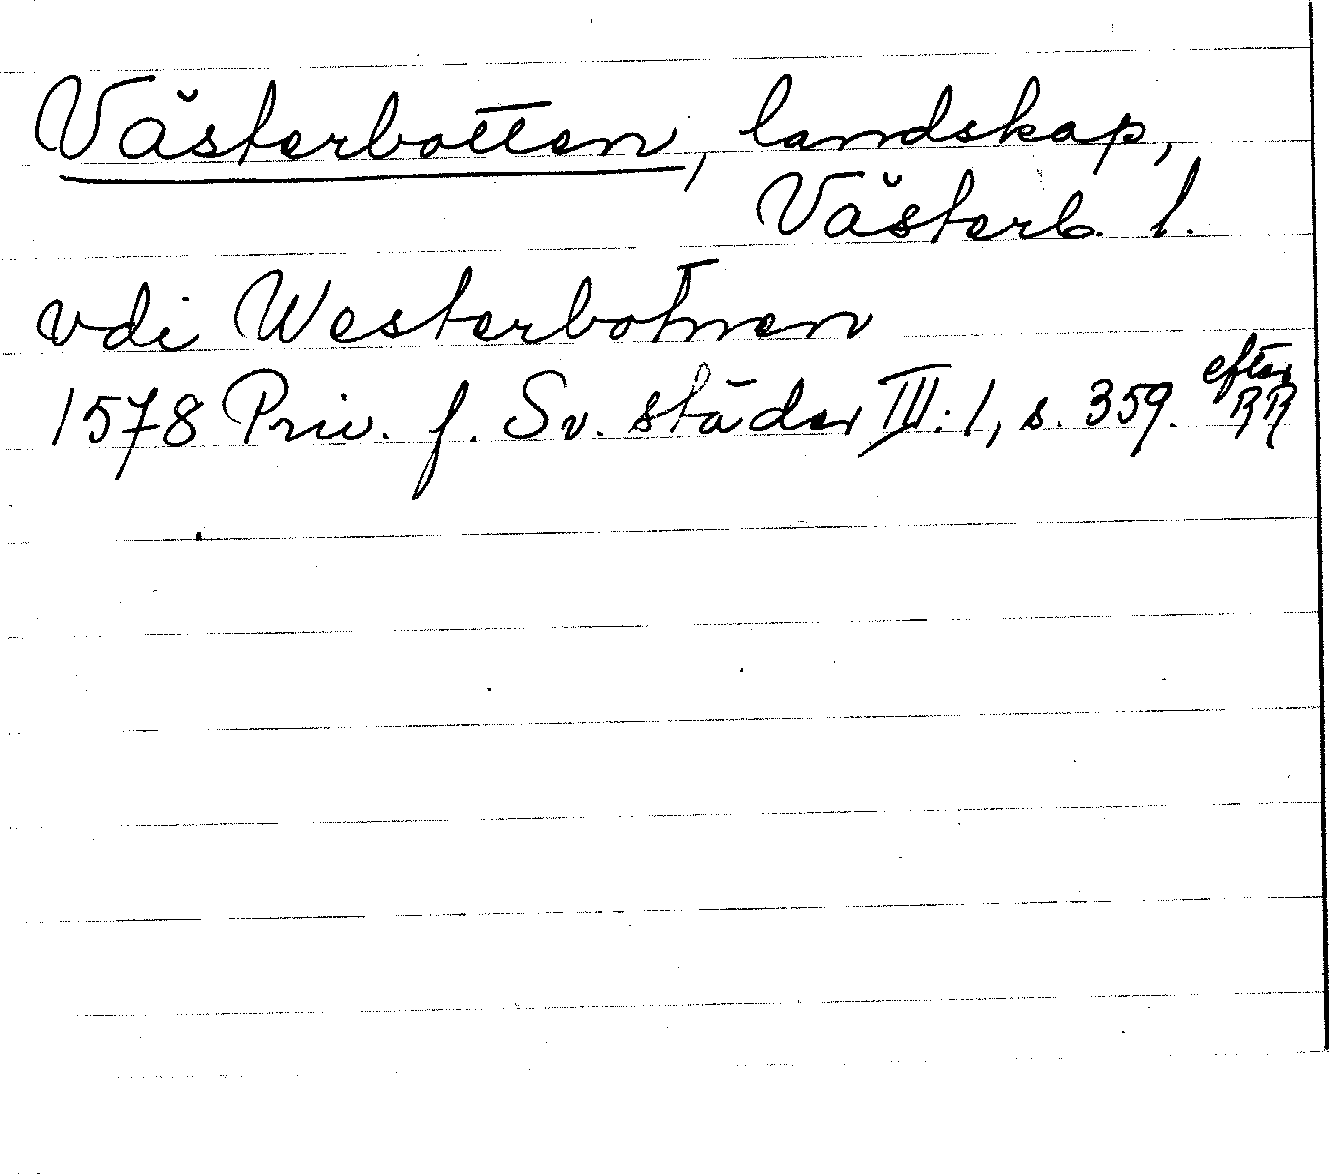 Västerbotten, landskap,
Västerb. l.
vdi Westerbotnen
1578 Priv. f. Sv. städer III:1, s. 359. efter RR